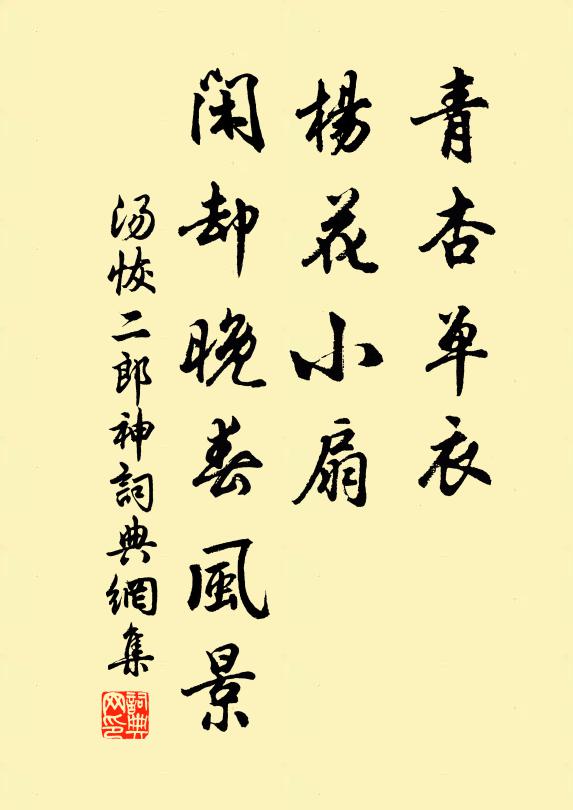 青杏单衣
楊花小扇
闲却晚春風景
汤恢二郎神詞典網集
詞典網印